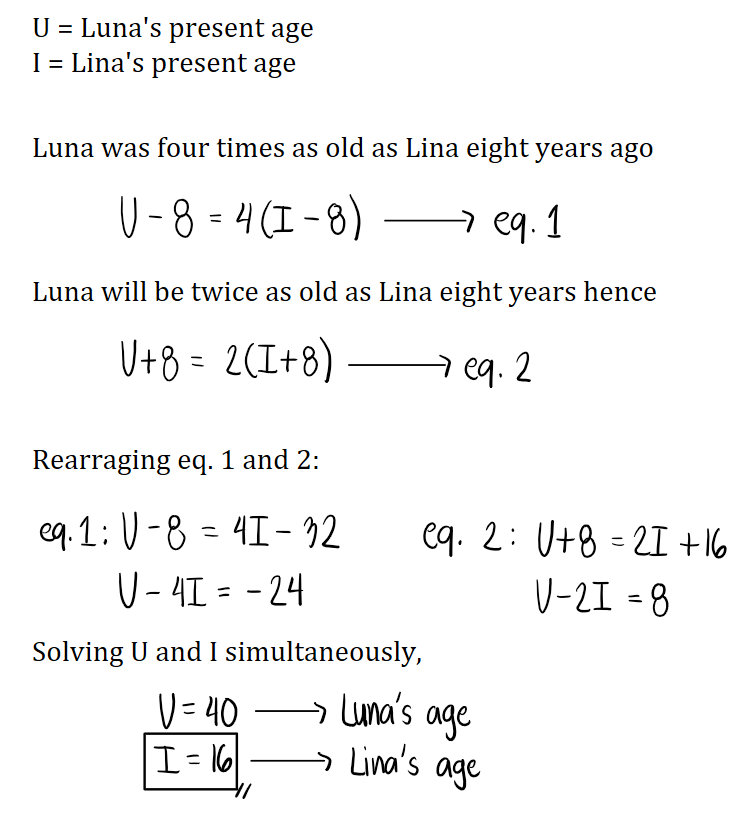 U = Luna's present age
I = Lina's present age
Luna was four times as old as Lina eight years ago
U - 8 = 4(I - 8) ⟶ eq. 1
Luna will be twice as old as Lina eight years hence
U+8 = 2(I+8) ⟶ eq. 2
Rearraging eq. 1 and 2:
eq. 1: U - 8 = 4I - 32 eq. 2: U+8 = 2I +16
U - 4I = -24 U-2I = 8
Solving U and I simultaneously,
U = 40 ⟶ Luna's age
I = 16 ⟶ Lina's age